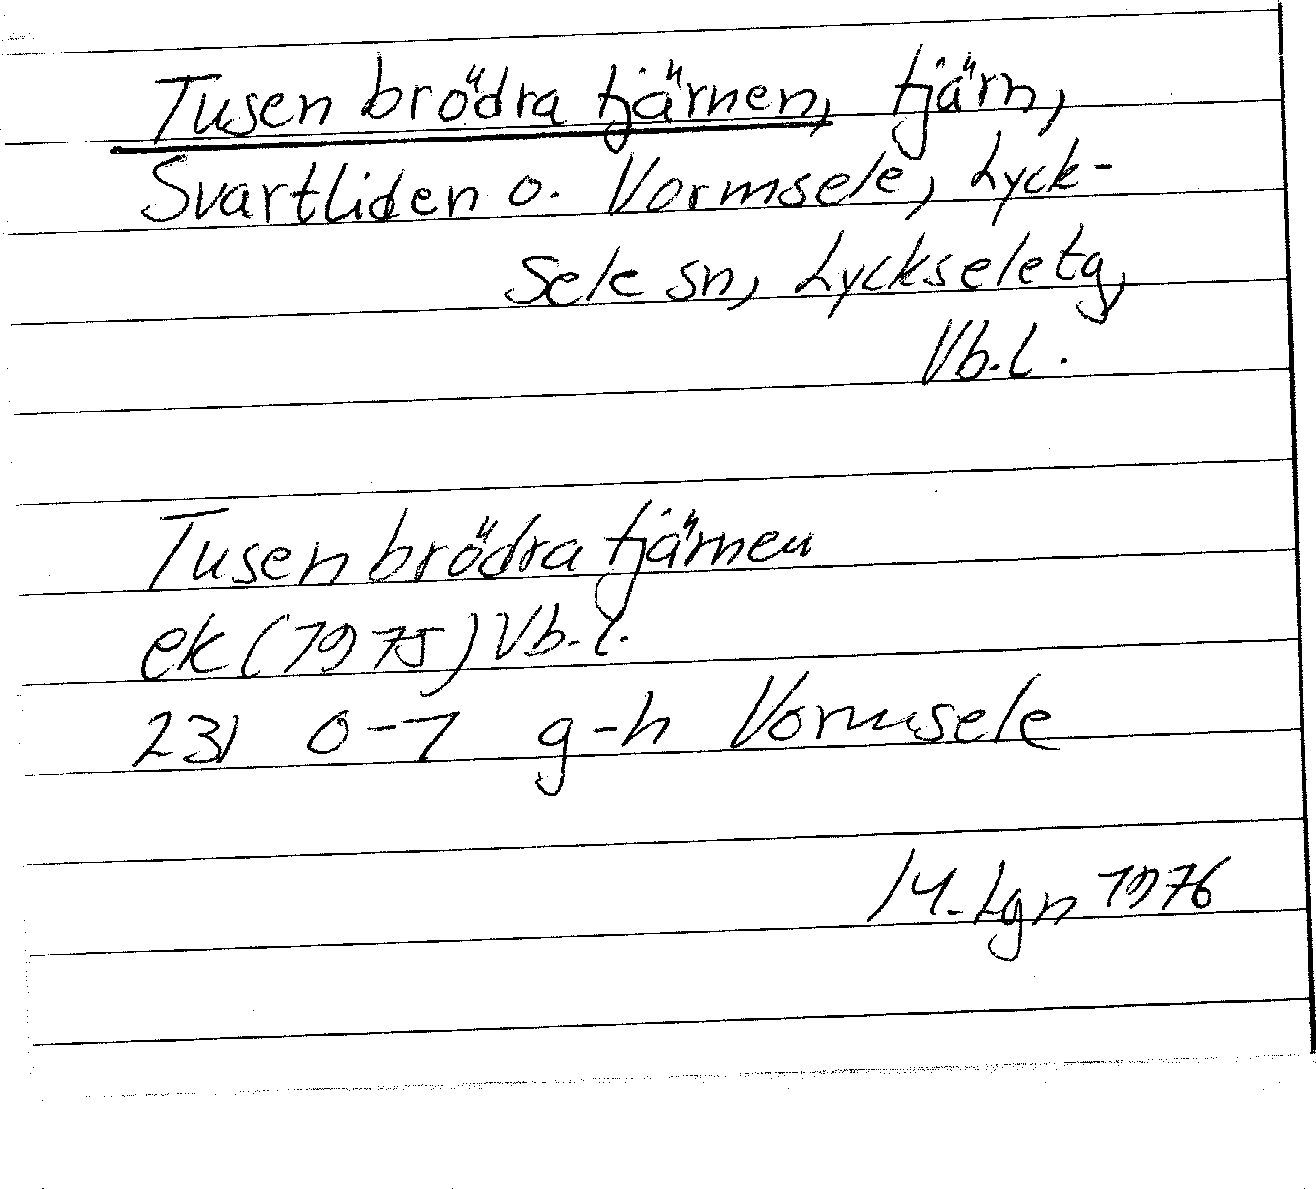 Tusen brödra tjärnen, tjärn,
Svartliden o. Vormsele, Lyck-
sele sn, Lyckseletg,
Vb.l.
Tusen brödra tjärnen
ek (1975) Vb.l.
231 0-1 g-h Vormsele
Lgn 1976